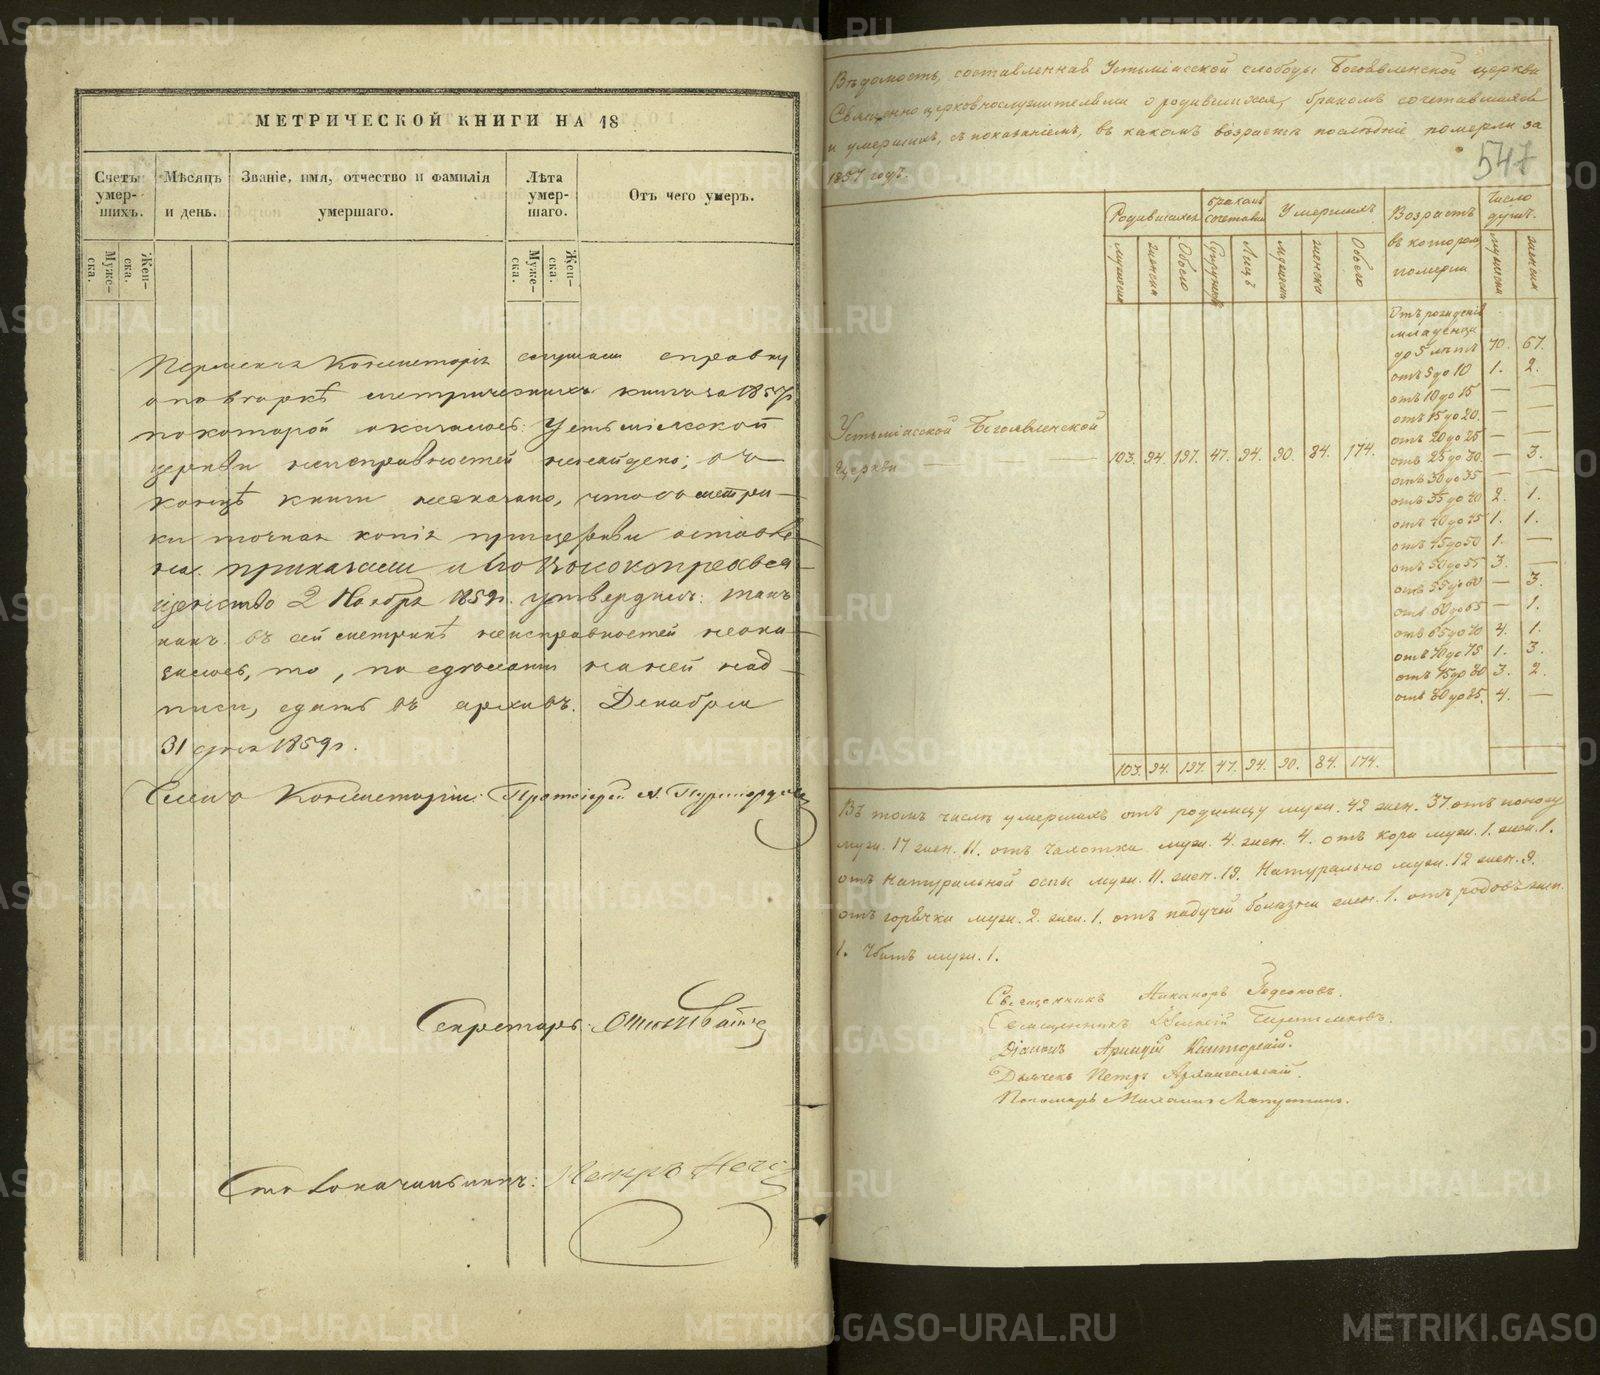 МЕТРИЧЕСКОЙ КНИГИ НА 18
Счетъ умер- шихъ.
Мѣсяцъ и день.
Званіе, имя, отчество и фамилія умершаго.
Лѣта умер- шаго.
Отъ чего умеръ.
Муже- ска.
Жен- ска.
Муже- ска.
Жен- ска.
Пермская Консисторія слушали справку
о повѣркѣ метрическихъ книгъ за 1857 г.
по которой оказалось: Устьміясской
церкви неисправностей ненайдено; въ
концѣ книги несказано, что съ метри-
ки точная копія при церкви оставле-
на. приказали и Его Высокопреосвя-
щенство 2 Ноября 1859 г. утвердилъ: такъ
какъ въ сей метрикѣ неисправностей неока-
залось, то, по сдѣланіи на ней над-
писи, сдать въ архивъ. Декабря
31 дня 1859 г.
Членъ Консисторіи: Протоіерей
Секретарь:
Столоначальникъ: Петръ
Вѣдомость, составленная Устьміасской слободы Богоявленской церкви
Священноцерковнослужителями о родившихся, бракомъ сочетавшихся
и умершихъ, съ показаніемъ, въ какомъ возрастѣ послѣдніе померли за
1857 годъ.
547
Родившихся
бракомъ сочетавш
Умершихъ
Возрастъ въ которомъ померли
Число душъ.
мужеска
женска
Обоего
Супружес
Лицъ
мужеск
женска
Обоего
мужеска
женска
Устьміасской Богоявленской
Церкви — — 103. 94. 197. 47. 94. 90. 84. 174.
Отъ рожденія
младенцы
до 5 лѣтъ 70. 67.
отъ 5 до 10 1. 2.
отъ 10 до 15 — —
отъ 15 до 20 — —
отъ 20 до 25 — —
отъ 25 до 30 — 3.
отъ 30 до 35 — —
отъ 35 до 40 2. 1.
отъ 40 до 45 1. 1.
отъ 45 до 50 1. —
отъ 50 до 55 3. —
отъ 55 до 60 — 3.
отъ 60 до 65 — 1.
отъ 65 до 70 4. 1.
отъ 70 до 75 1. 3.
отъ 75 до 80 3. 2.
отъ 80 до 85. 4. —
103. 94. 197. 47. 94. 90. 84. 174.
Въ томъ числѣ умершихъ отъ родимцу муж. 42 жен. 37 отъ поносу
муж. 17 жен. 11. отъ чахотки муж. 4. жен. 4. отъ кори муж. 1. жен. 1.
отъ Натуральной оспы муж. 11. жен. 19. Натурально муж. 12 жен. 9.
отъ горячки муж. 2. жен. 1. отъ падучей болѣзни жен. 1. отъ родовъ жен.
1. Убитъ муж. 1.
Священникъ Никаноръ
Священникъ
Діаконъ Аркадій Канторскій.
Дьячекъ Петръ Архангельскій.
Пономарь Михаилъ Лапустинъ.
METRIKI.GASO-URAL.RU